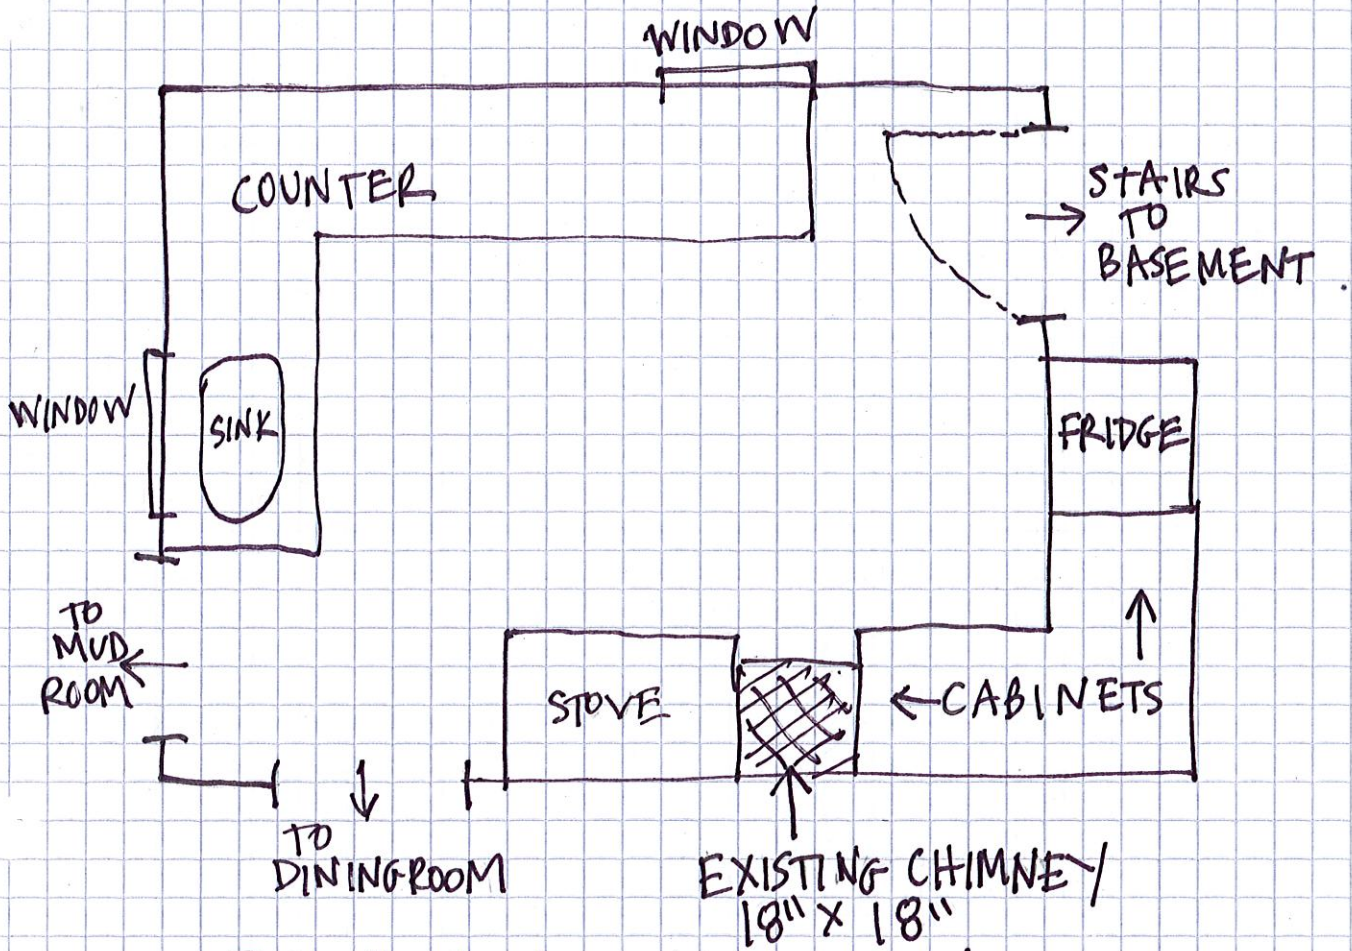 WINDOW
COUNTER
STAIRS
TO
BASEMENT
WINDOW
SINK
FRIDGE
TO
MUD
ROOM
STOVE
CABINETS
TO
DINING ROOM
EXISTING CHIMNEY
18" X 18"